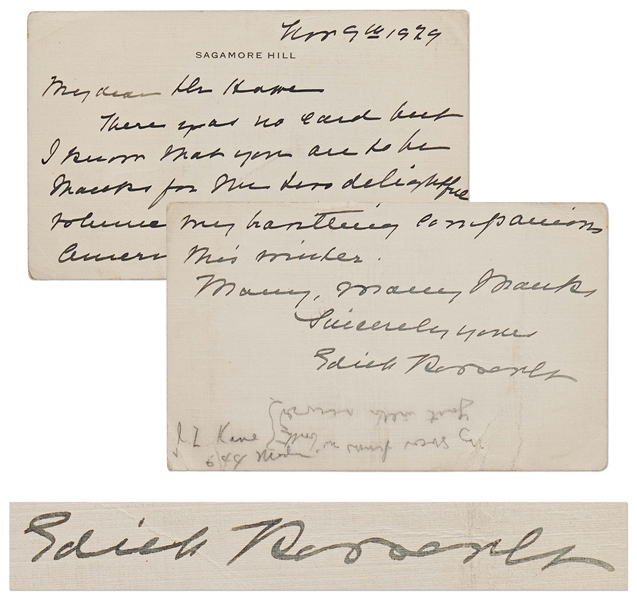 Nov 9th 1929
SAGAMORE HILL
My dear Mr
There was no card but
I know that you are to be
thanks for the two delightful
volume
Ameri
my bantling companions
this winter.
Many, many thanks
Sincerely yours
Edith Roosevelt
J L Kane
Edith Roosevelt